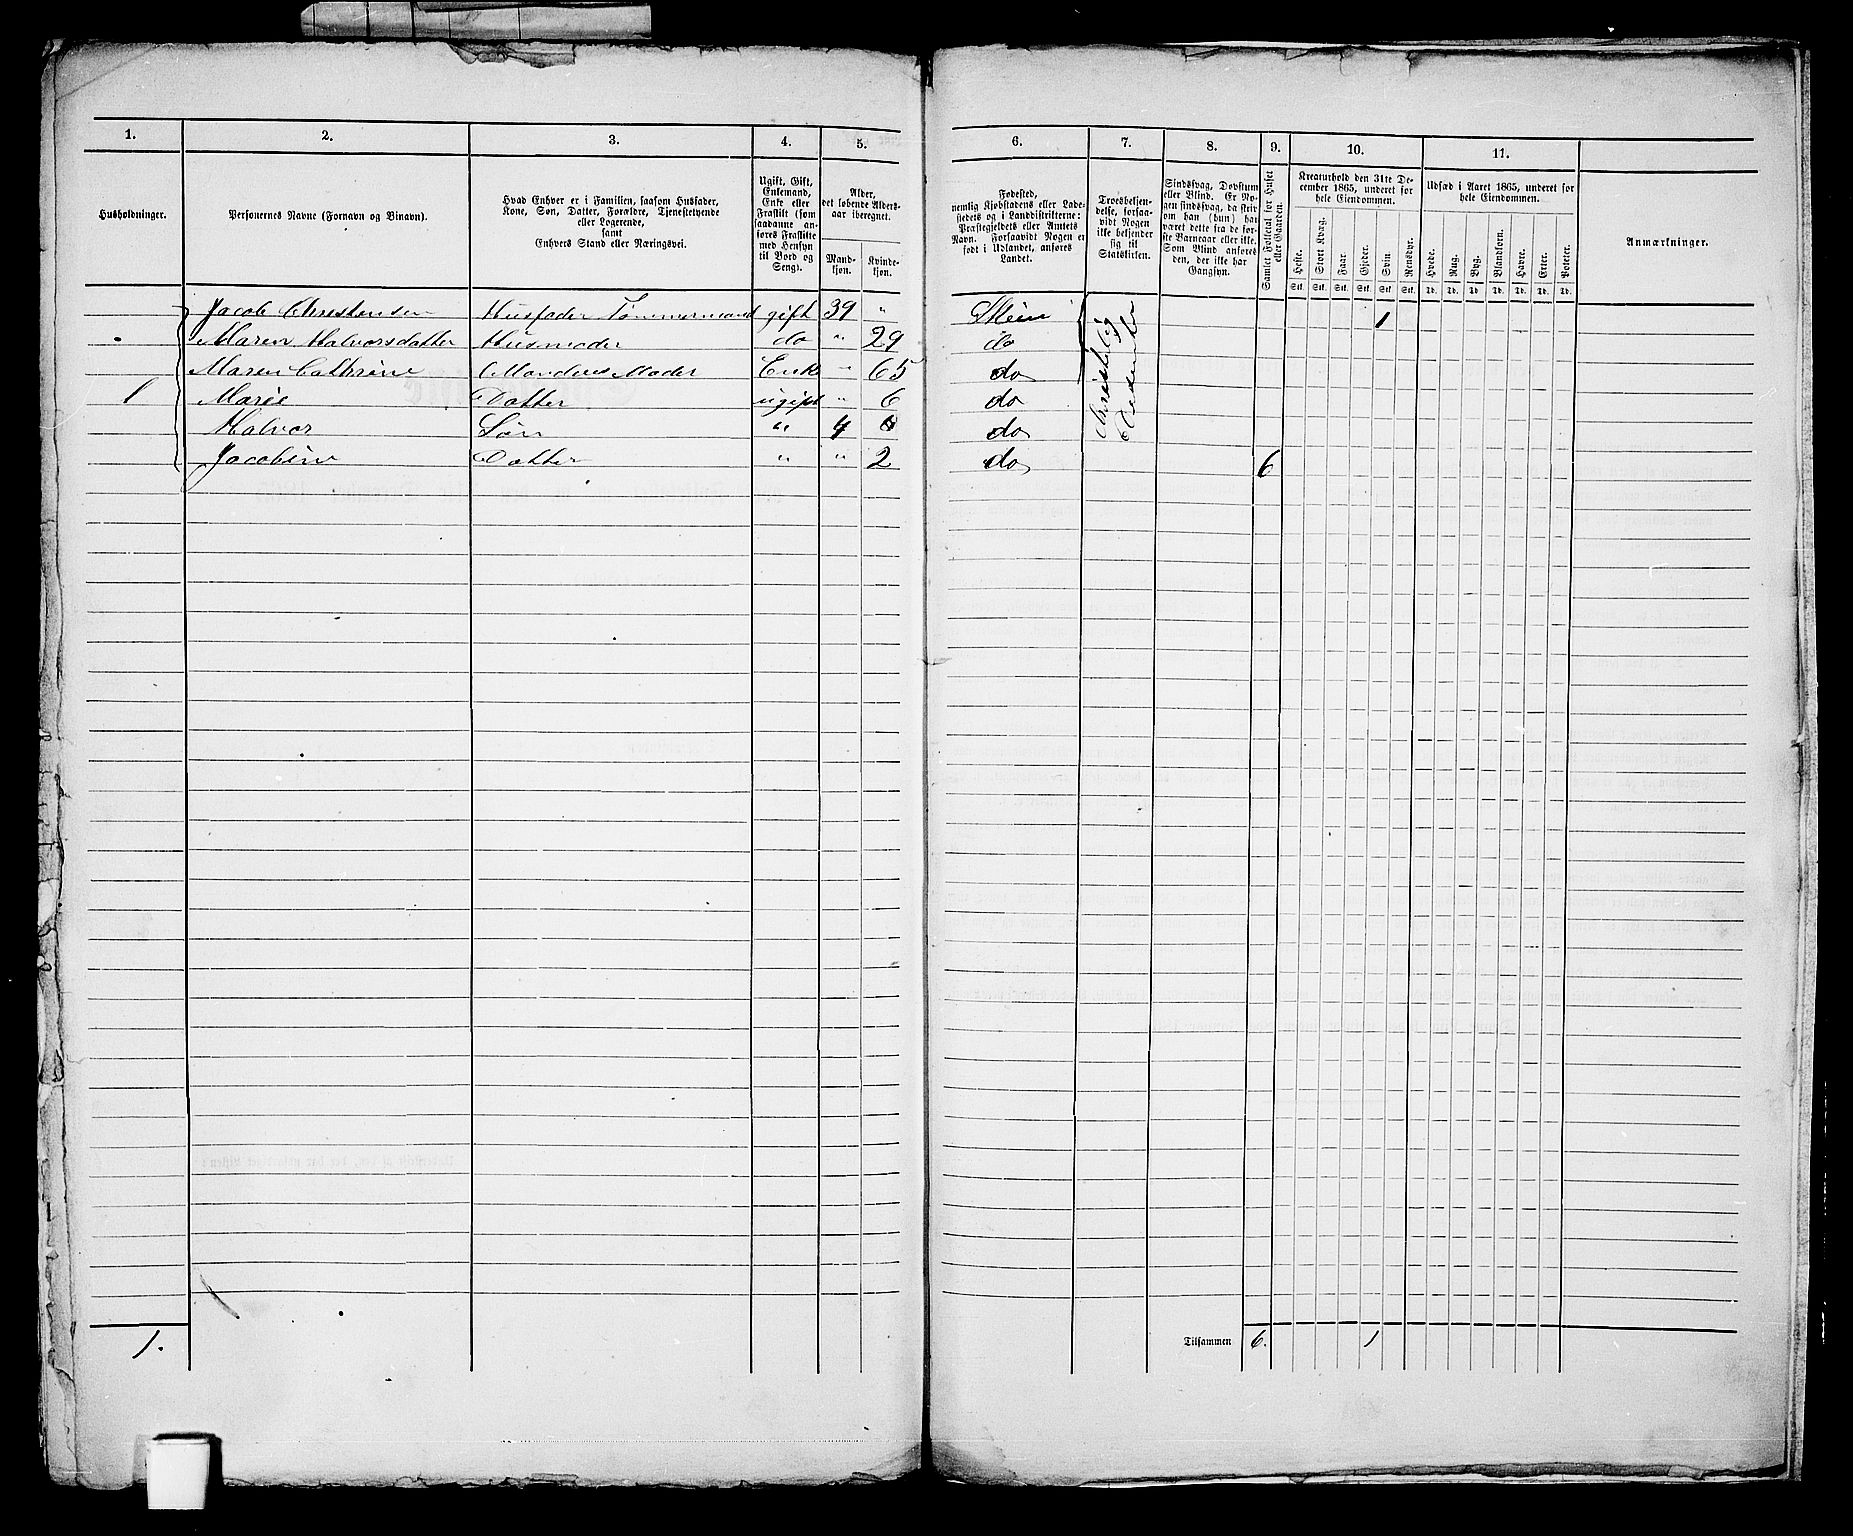 1. 2. 3. 4. 5. 6. 7. 8. 9. 10. 11.
Husholdninger.
Personernes Navne (Fornavn og Binavn).
Hvad Enhver er i Familien, saasom Husfader,
Kone, Søn, Datter, Forældre, Tjenestetyende
eller Logerende,
samt
Enhvers Stand eller Næringsvei.
Ugift, Gift,
Enkemand,
Enke eller
Fraskilt (som
saadanne an-
føres Fraskilte
med Hensyn
til Bord og
Seng).
Alder,
det løbende Alders-
aar iberegnet.
Mand-
kjøn.
Kvinde-
kjøn.
Fødested,
nemlig Kjøbstadens eller Lade-
stedets og i Landdistrikterne:
Præstegjeldets eller Amtets
Navn. Forsaavidt Nogen er
født i Udlandet, anføres
Landet.
Troesbekjen-
delse, forsaa-
vidt Nogen
ikke bekjender
sig til
Statskirken.
Sindssvag, Døvstum
eller Blind. Er No-
gen sindssvag, da skriv
om han (hun) har
været dette fra de før-
ste Barneaar eller ikke.
Som Blind anføres
den, der ikke har
Gangsyn.
Samlet Folketal for Huset
eller Gaarden.
Kreaturhold den 31te De-
cember 1865, underet for
hele Eiendommen.
Heste. Stort Kvæg. Faar. Gjeder. Svin. Rensdyr.
Stk. Stk. Stk. Stk. Stk. Stk.
Udsæd i Aaret 1865, underet for
hele Eiendommen.
Hvede. Rug. Byg. Blandkorn. Havre. Erter. Poteter.
Td. Td. Td. Td. Td. Td. Td.
Anmærkninger.
Jacob Christensen Husfader Tømmermand gift 39 " Skien 1
Maren Halvorsdatter Husmoder do " 29 do
Maren Cathrine Mandens Moder Enke " 65 do
1 Marie Datter ugift " 6 do
Halvor Søn " 4 do
Jacobine Datter " " 2 do 6
Christelig
1. Tilsammen 6. 1